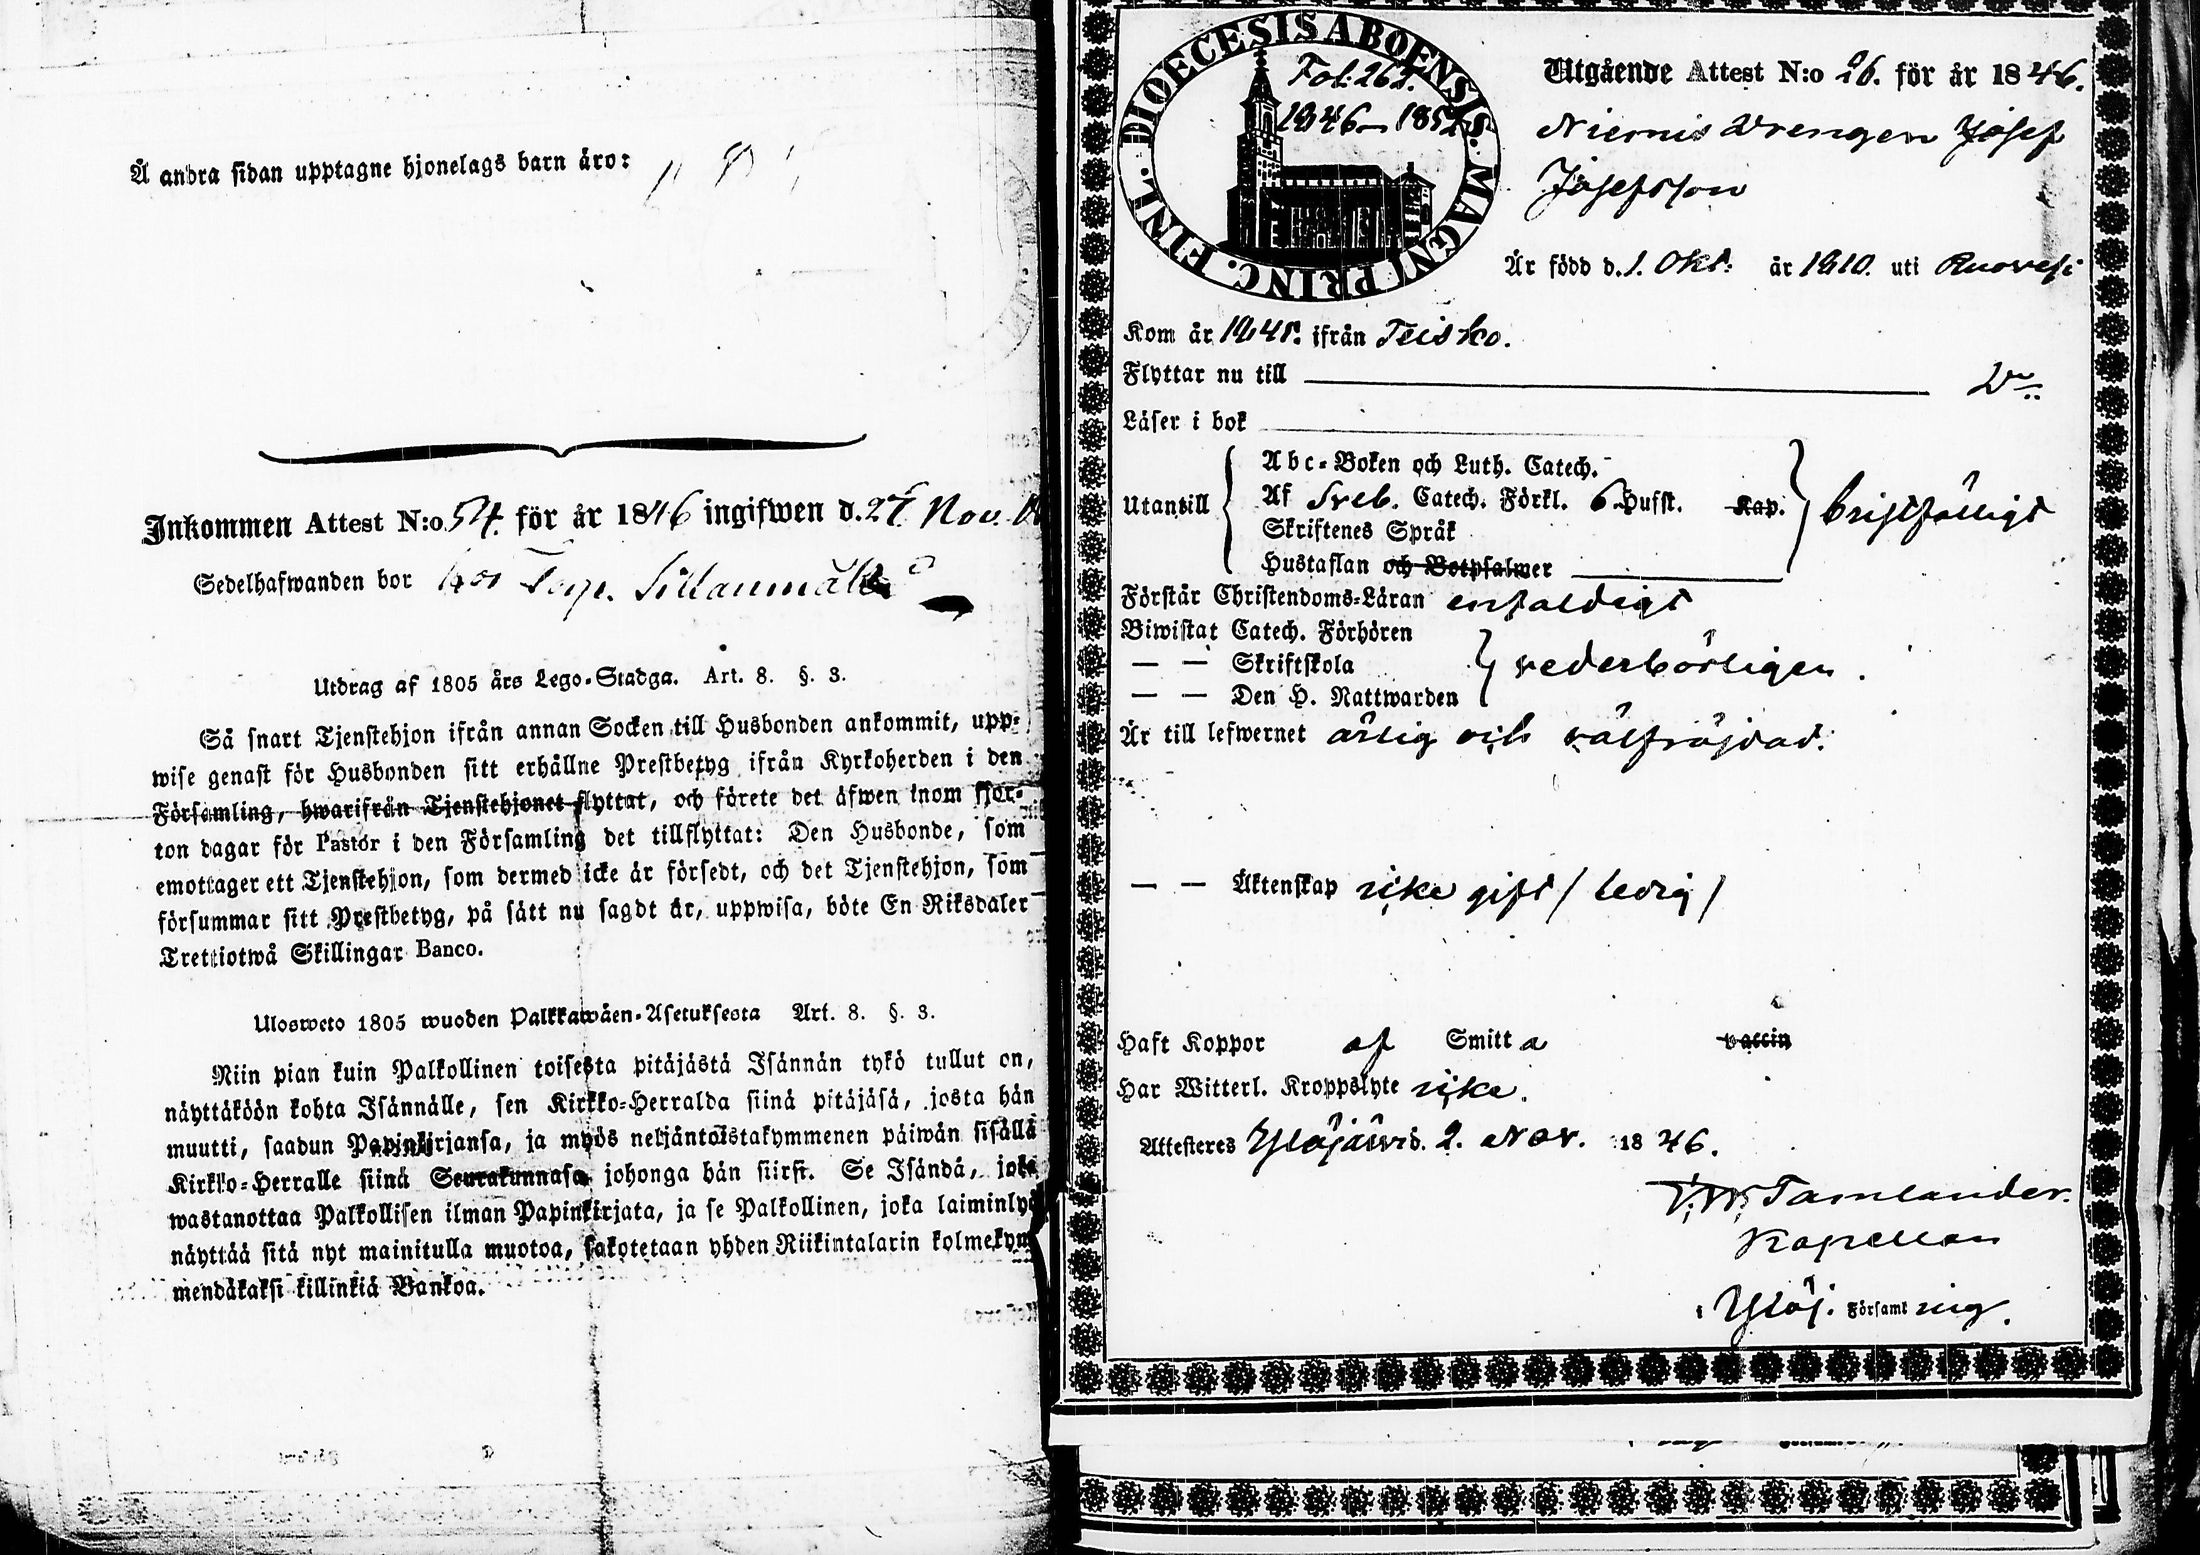 Å andra sidan upptagne hjonelags barn äro:
Inkommen Attest N:o 54. för år 1846 ingifwen d. 27 Nov.
Sedelhafwanden bor hos Torp. Sillanmäki
Utdrag af 1805 års Lego-Stadga. Art. 8. §. 3.
Så snart Tjenstehjon ifrån annan Socken till Husbonden ankommit, upp-
wise genast för Husbonden sitt erhållne Prestbetyg ifrån Kyrkoherden i den
Församling, hwarifrån Tjenstehjonet flyttat, och förete det äfwen inom fjor-
ton dagar för Pastor i den Församling det tillflyttat: Den Husbonde, som
emottager ett Tjenstehjon, som dermed icke är försedt, och det Tjenstehjon, som
försummar sitt Prestbetyg, på sätt nu sagdt är, uppwisa, böte En Riksdaler
Trettiotwå Skillingar Banco.
Ulosweto 1805 wuoden Palkkawäen-Asetuksesta Art. 8. §. 3.
Niin pian kuin Palkollinen toisesta pitäjästä Isännän tykö tullut on,
näyttäköön kohta Isännälle, sen Kirkko-Herralda siinä pitäjäsä, josta hän
muutti, saadun Papinkirjansa, ja myös neljäntoistakymmenen päiwän sisällä
Kirkko-Herralle siinä Seurakunnasa johonga hän siirst. Se Isändä, joka
wastanottaa Palkollisen ilman Papinkirjata, ja se Palkollinen, joka laiminlyö
näyttää sitä nyt mainitulla muotoa, sakotetaan yhden Riikintalarin kolmekym
mendäkaksi killinkiä Bankoa.
DIOECESIS ABOENSIS. MAGNI PRINC. FINL.
Fol: 262.
1846–1852
Utgående Attest N:o 26. för år 1846.
Niemis Drengen Josef
Josefsson
Är född d. 1. Okt. år 1810. uti Ruovesi
Kom år 1845. ifrån Teisko.
Flyttar nu till
Läser i bok
Utantill
Abc-Boken och Luth. Catech.
Af Sveb. Catech. Förkl. 6 Hufst. Kap.
Skriftenes Språk
Hustaflan och Botpsalmer
bristfälligt
Förstår Christendoms-Läran enfaldigt
Biwistat Catech. Förhören
— — Skriftskola
— — Den H. Nattwarden
vederbörligen.
Är till lefwernet ärlig och välfräjdad.
— — Äktenskap icke gift / ledig /
Haft Koppor af Smitta vaccin
Har Witterl. Kroppslyte icke.
Attesteres Ylöjärvi d. 2. Nov. 1846.
Tamlander.
Kapellan
i Ylöj. Församling.